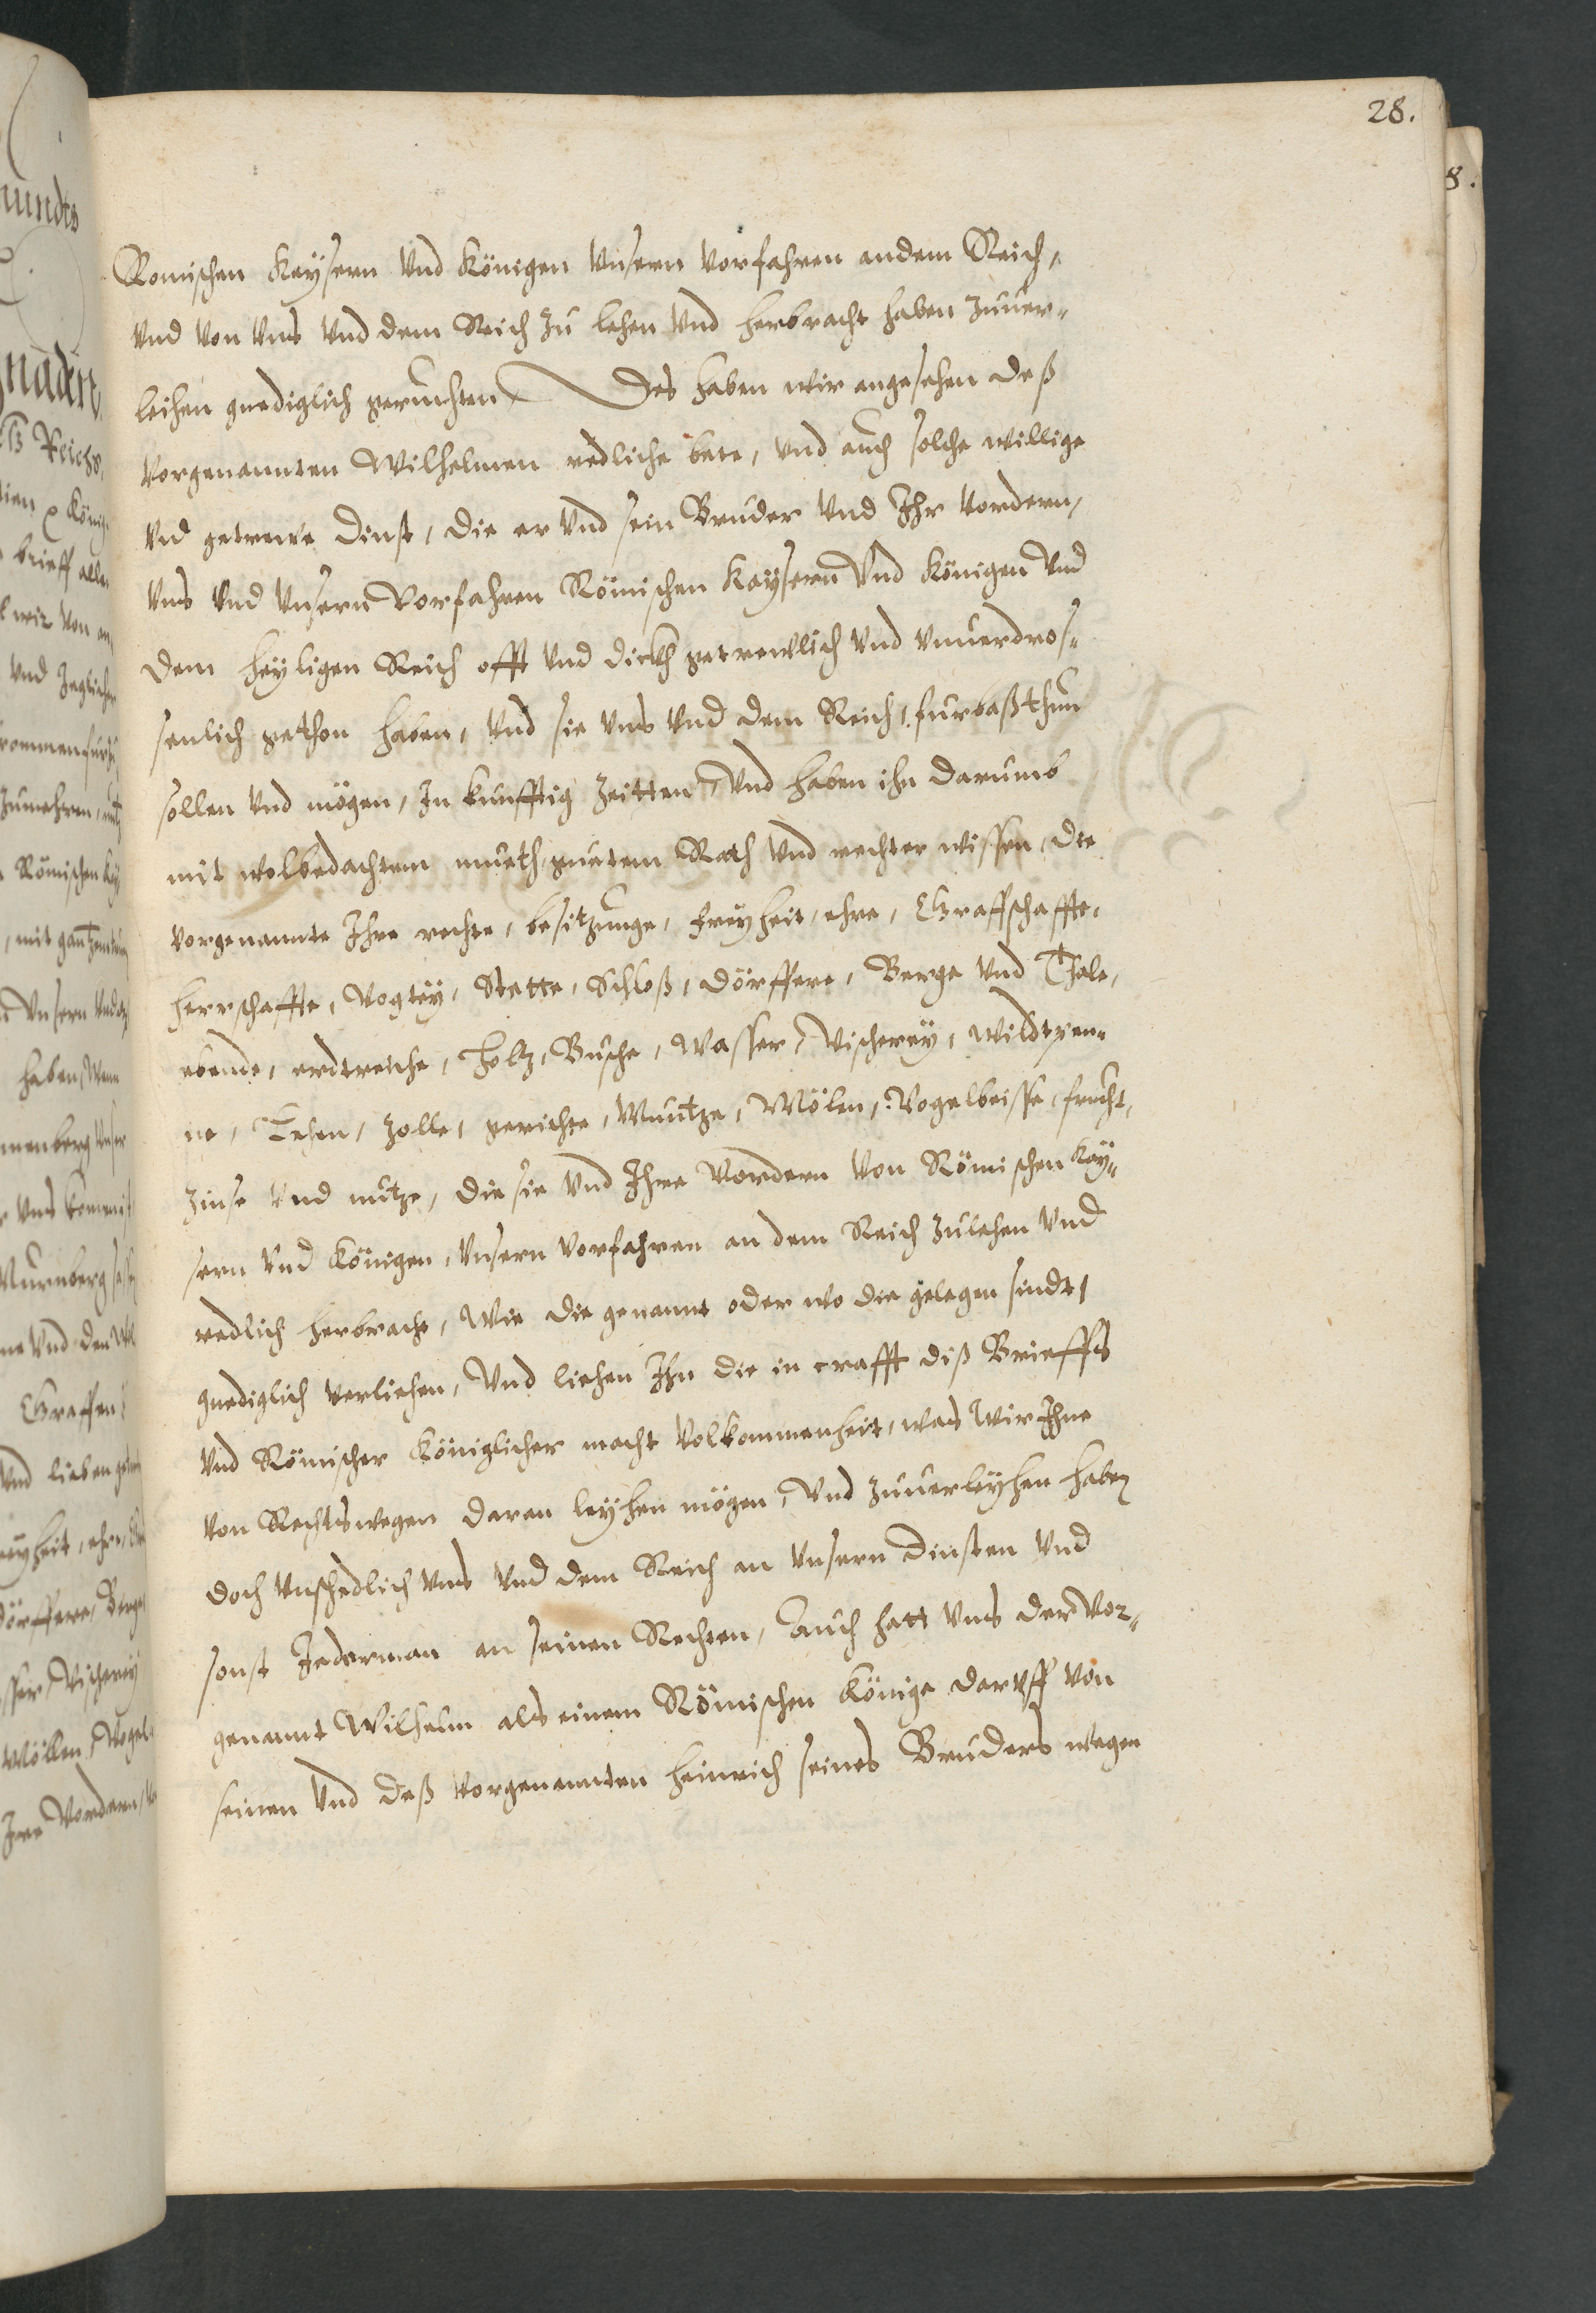 28.
Romischen Kaysern vnd Königen vnsern vorfahren an dem Reich,
vnd von vns vnd dem Reich zu lehen vnd herbracht haben zuuer-
leihen gnediglich geruchten, Des haben wir angesehen deß
vorgenannten Wilhelmen redliche bete, vnd auch solche willige
vnd getrewe Dinst, die er vnd sein Bruder vnd Ihr vordern,
vns vnd vnsern Vorfahren Römischen Kaysern vnd Königen vnd
dem heyligen Reich offt vnd dickh getrewlich vnd vnuerdros-
senlich gethon haben, vnd sie vns vnd dem Reich, furbaß thun
sollen vnd mögen, In kunfftig Zeitten, vnd haben ihn darumb
mit wolbedachtem mueth, guetem Rath vnd rechter wissen, die
vorgenannte Ihre rechte, besitzunge, freyheit, ehre, Graffschaffte,
herrschaffte, Vogtey, Stette, Schloß, Dörffere, Berge vnd Thale,
ebende, erdtreiche, Holtz, Busche, Wasser, Vischerey, Wildtpen-
ne, Lehen, Zolle, gerichte, Muntze, Mölen, Vogelbeisse, frucht,
Zinse vnd nutze, die sie vnd Ihre Vordern von Römischen Kay-
sern vnd Königen, vnsern vorfahren an dem Reich zulehen vnd
redlich herbracht, Wie die genannt oder wo die gelegen sindt,
gnediglich verliehen, Vnd liehen Ihn die in crafft diß Brieffs
vnd Römischer Königlicher macht Volkommenheit, was Wir Ihne
von Rechtswegen daran leyhen mögen, Vnd zuuerleyhen haben
doch vnschedlich vns vnd dem Reich an vnsern Dinsten vnd
sonst Jederman an seinen Rechten, Auch hatt vns der vor-
genannt Wilhelm als einem Römischen Könige daruff von
seinen vnd deß vorgenannten Heinrich seines Bruders wegen